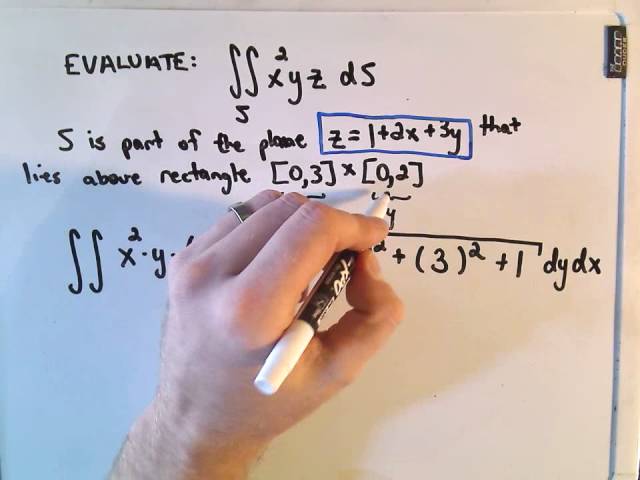 EVALUATE: ∬ₛ x²yz dS
S is part of the plane z = 1+2x+3y that
lies above rectangle [0,3] × [0,2]
y
∬ x²·y· ² + (3)² + 1 dydx